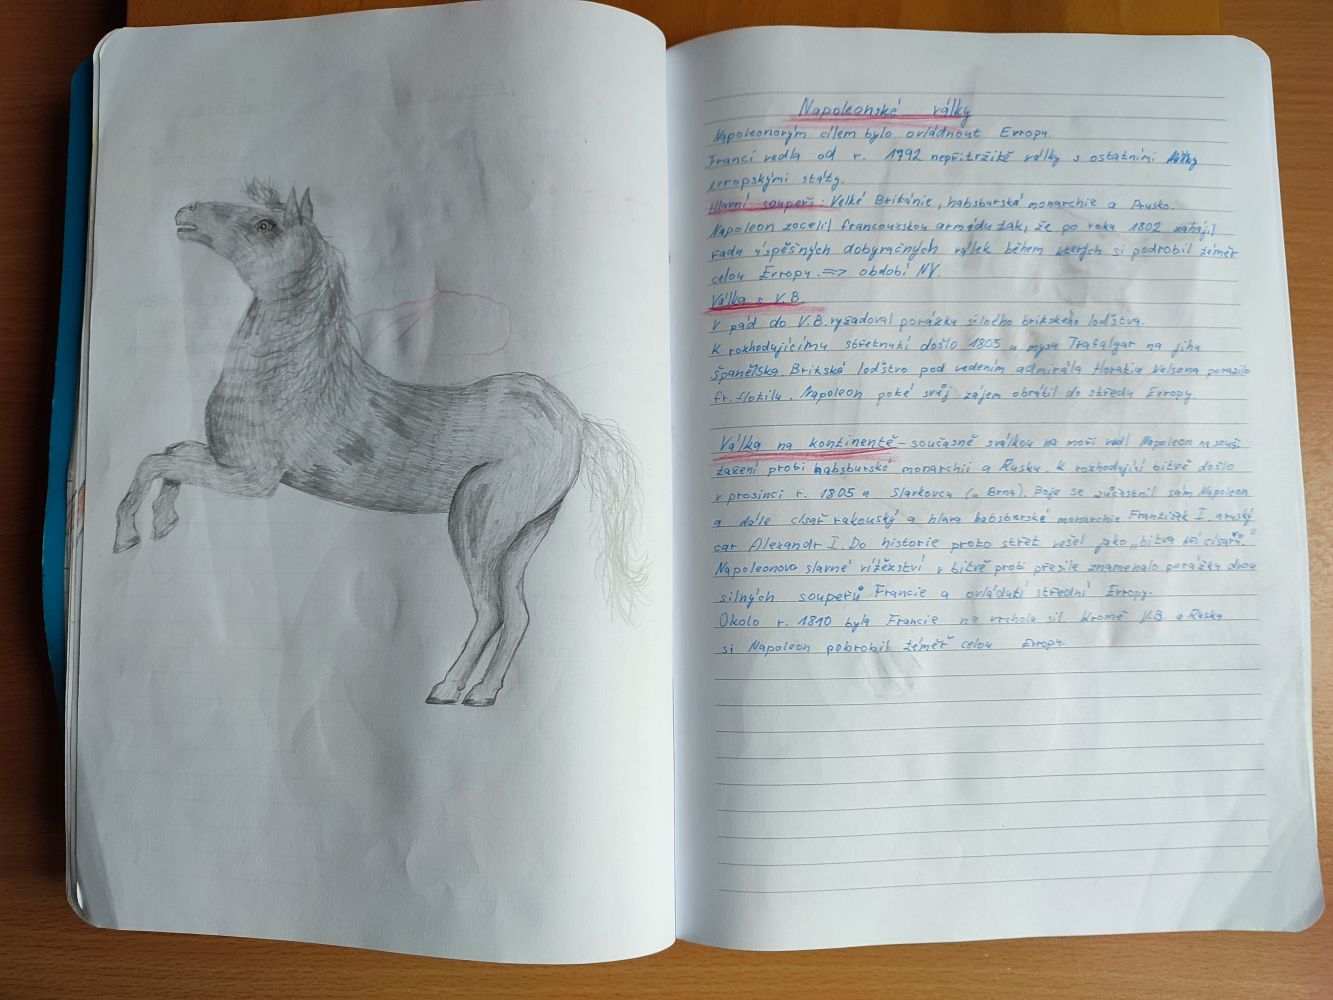 Napoleonské války
Napoleonovým cílem bylo ovládnout Evropu.
Franci vedla od r. 1992 nepřitržitě války s ostatními
evropskými státy.
Hlavní soupeři: Velké Británie, habsburská monarchie a Prusko.
Napoleon zocelil francouzskou armádu tak, že po roku 1802 zahájil
řadu úspěšných dobyvačných válek během kterých si podrobil téměř
celou Evropu. => období NV.
Válka s V.B.
V pád do V.B. vyžadoval porážku silného britského loďstva.
K rozhodujícímu střetnutí došlo 1805 u mysu Trafalgar na jihu
Španělska. Britské loďstvo pod vedením admirála Horatia Nelsona porazilo
fr. flotilu. Napoleon poté svůj zájem obrátil do středu Evropy.
Válka na kontinentě - současně s válkou na moři vedl Napoleon na souši
tažení proti habsburské monarchii a Rusku. K rozhodující bitvě došlo
v prosinci r. 1805 u Slavkovcu (u Brna). Boje se zúčastnil sám Napoleon
a dále císař rakouský a hlava habsburské monarchie František I. a ruský
car Alexandr I. Do historie proto střet vešel jako „bitva tří císařů."
Napoleonovo slavné vítězství v bitvě proti přesile znamenalo porážku dvou
silných soupeřů Francie a ovládutí střední Evropy.
Okolo r. 1810 byla Francie na vrcholu sil. Kromě V.B. a Ruska
si Napoleon pobrobil téměř celou Evropu.